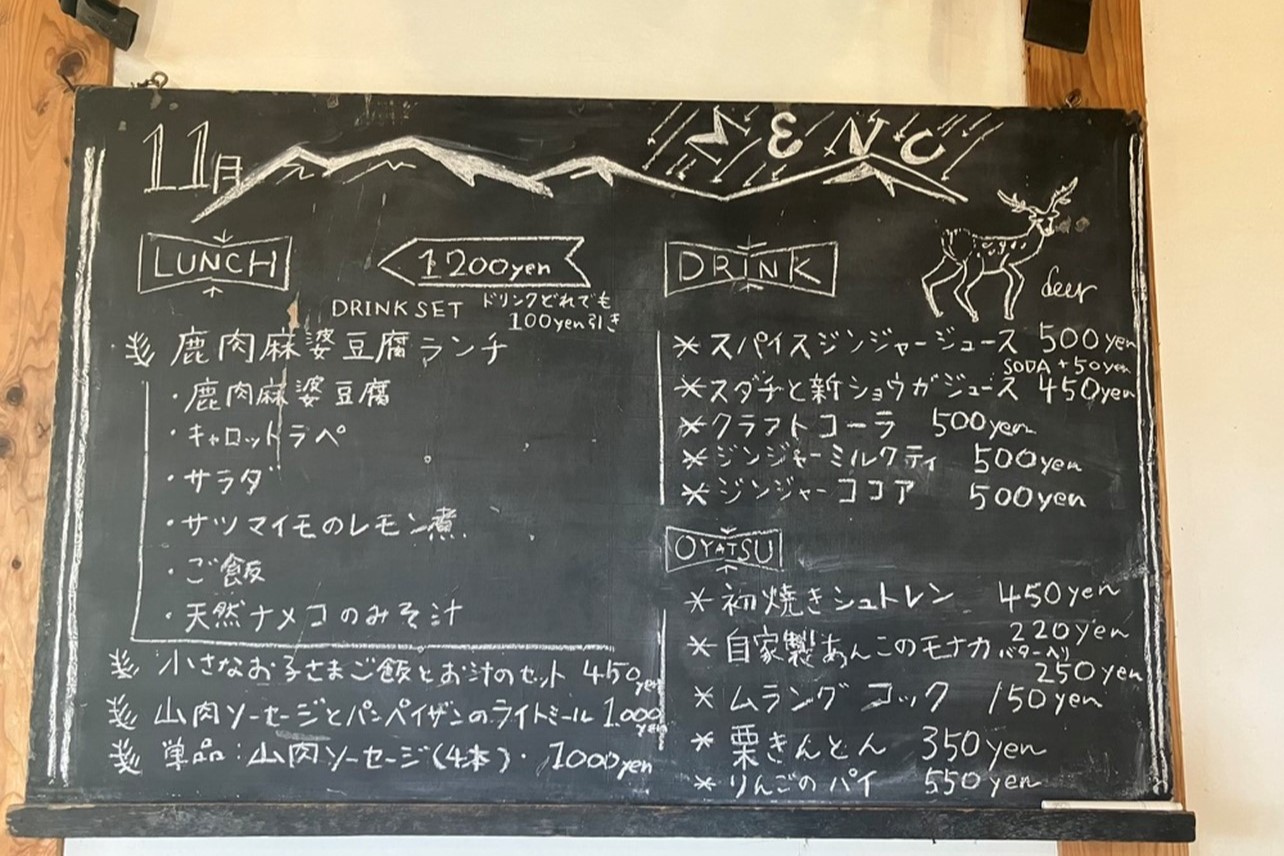 11月
MENU
LUNCH
1200yen
DRINK SET ドリンクどれでも
100yen引き
鹿肉麻婆豆腐ランチ
・鹿肉麻婆豆腐
・キャロットラペ
・サラダ
・サツマイモのレモン煮
・ご飯
・天然ナメコのみそ汁
小さなお子さまご飯とお汁のセット 450yen
山肉ソーセージとパンペイザンのライトミール 1.000yen
単品:山肉ソーセージ(4本)・1000yen
DRINK
deer
* スパイスジンジャージュース 500yen
SODA +50yen
* スダチと新ショウガジュース 450yen
* クラフトコーラ 500yen
* ジンジャーミルクティ 500yen
* ジンジャーココア 500yen
OYATSU
* 初焼きシュトレン 450yen
* 自家製あんこのモナカ 220yen
バター入り 250yen
* ムラング コック 150yen
* 栗きんとん 350yen
* りんごのパイ 550yen